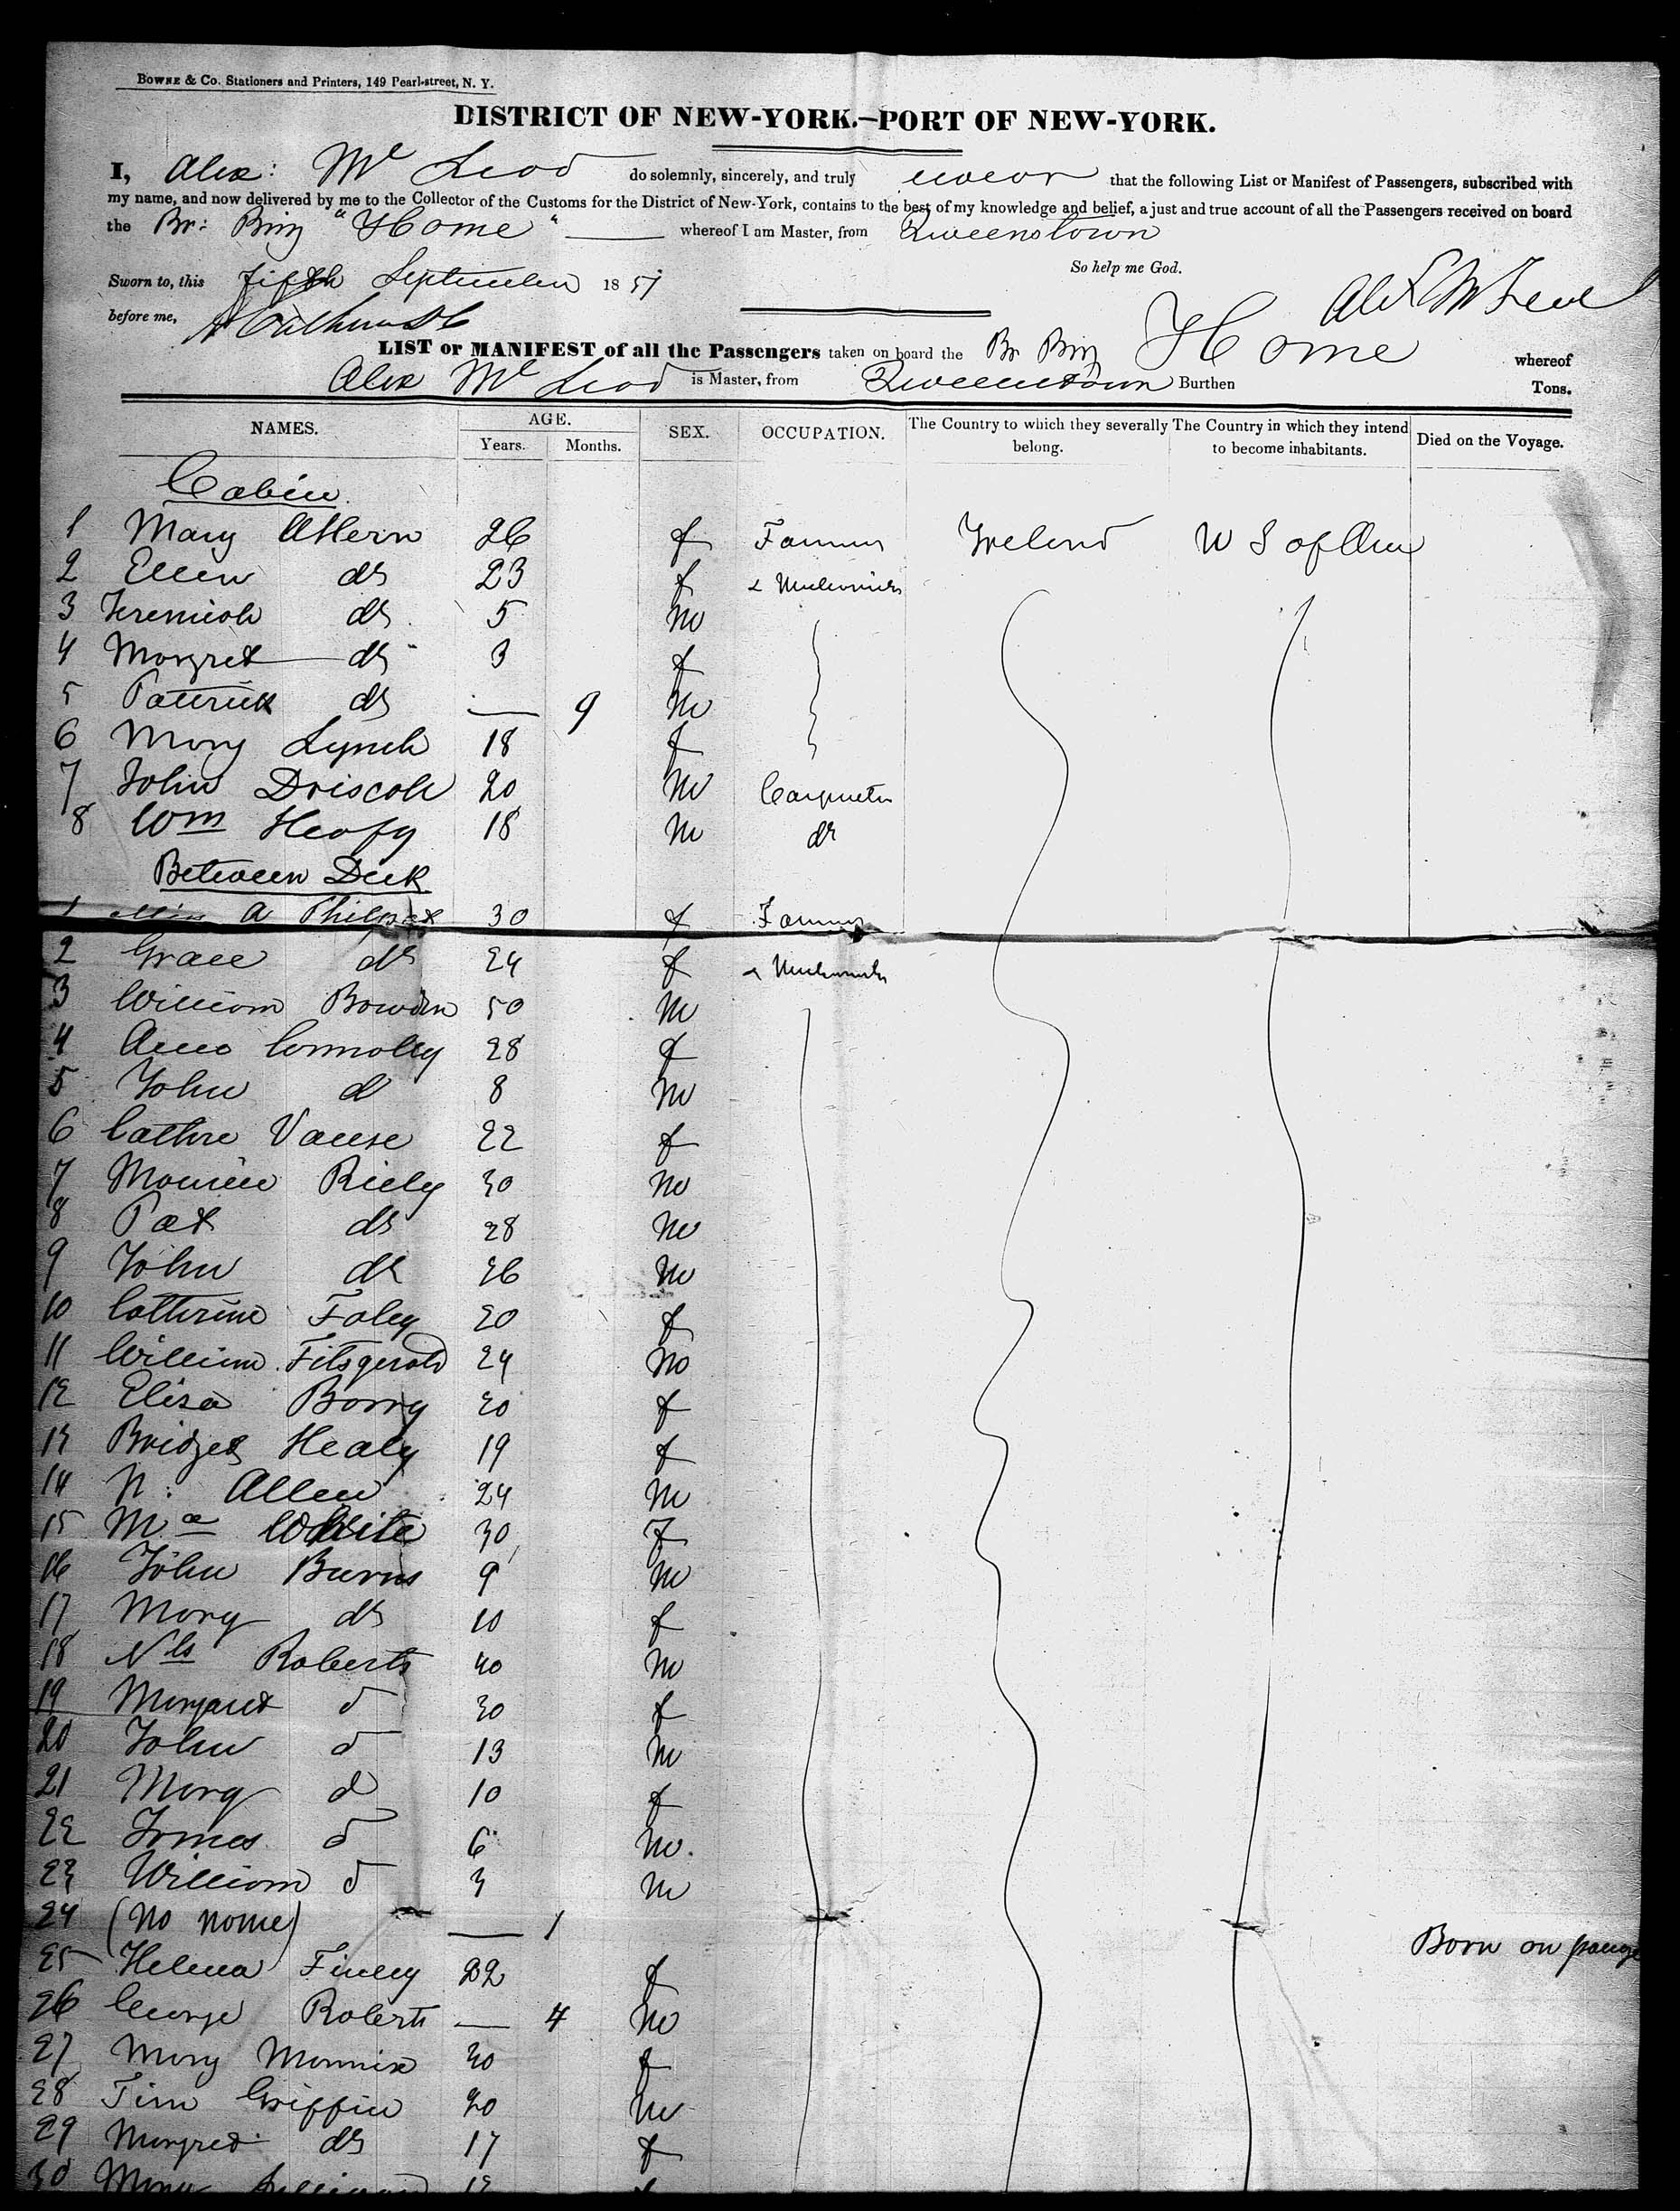 BOWNE & CO. Stationers and Printers, 149 Pearl-street, N. Y.
DISTRICT OF NEW-YORK.—PORT OF NEW-YORK.
I, Alex: Mc Leod do solemnly, sincerely, and truly swear that the following List or Manifest of Passengers, subscribed with
my name, and now delivered by me to the Collector of the Customs for the District of New-York, contains to the best of my knowledge and belief, a just and true account of all the Passengers received on board
the Br: Brig "Home" whereof I am Master, from Queenstown
So help me God.
Sworn to, this fifth September 1851
Alex McLeod
before me,
LIST or MANIFEST of all the Passengers taken on board the Br Brig Home whereof
Alex Mc Leod is Master, from Queenstown Burthen Tons.
NAMES. AGE. Years. Months. SEX. OCCUPATION. The Country to which they severally belong. The Country in which they intend to become inhabitants. Died on the Voyage.
Cabin
1 Mary Ahern 26 f Farmers Ireland U S of Am
2 Ellen do 23 f & Mechanics
3 Jeremiah do 5 m
4 Margret do 3 f
5 Patrick do — 9 m
6 Mary Lynch 18 f
7 John Driscoll 20 m Carpenter
8 Wm Heafy 18 m do
Between Deck
1 A Philpot 30 f Farmers
2 Grace do 24 f & Mechanics
3 William Bowden 50 m
4 Ann Connolly 28 f
5 John d 8 m
6 Cathre Vause 22 f
7 Maurice Riely 30 m
8 Pat do 28 m
9 John do 26 m
10 Catherine Foley 20 f
11 William Fitsgerald 24 m
12 Elisa Barry 20 f
13 Bridget Healy 19 f
14 N: Allen 24 m
15 Ma White 30 f
16 John Burns 9 m
17 Mary do 10 f
18 Nls Roberts 40 m
19 Margaret d 30 f
20 John d 13 m
21 Mary d 10 f
22 James d 6 m.
23 William d 3 m
24 (no name) — 1 Born on
25 Helena Finley 22 f
26 George Roberts — 4 m
27 Mary Mannix 30 f
28 Tim Griffin 20 m
29 Margret do 17 f
30 Mary Sullivan